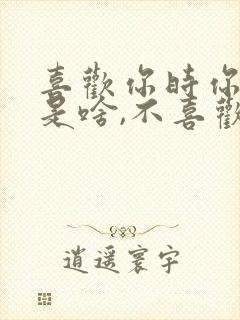 喜歡你時你
是啥,不喜歡
逍遥寰宇